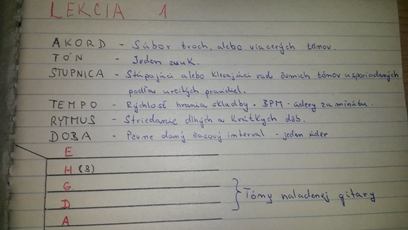 LEKCIA 1
AKORD - Súbor troch, alebo viacerých tónov.
TÓN - Jeden zvuk.
STUPNICA - Stúpajúci alebo klesajúci rad ôsmich tónov usporiadaných
podľa určitých pravidiel.
TEMPO - Rýchlosť hrania skladby - BPM - údery za minútu.
RYTMUS - Striedanie dlhých a krátkych dôb.
DOBA - Pevne daný časový interval - jeden úder
E
H (B)
G
D
A
Tóny naladenej gitary